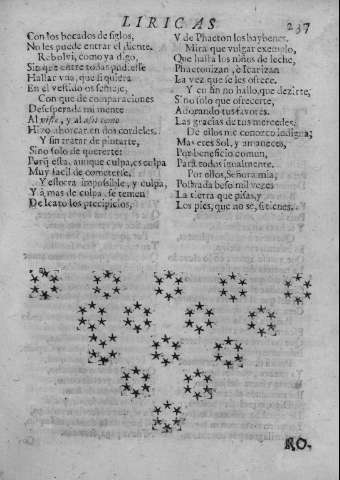 LIRICAS 237
Con los bocados de siglos,
No les puede entrar el diente.
Rebolvi, como ya digo,
Sin que entre todas pudiesse
Hallar vna, que siquiera
En el vestido os semeje,
Con que de comparaciones
Desesperada mi mente
Al viste, y al assi como
Hizo ahorcar en dos cordeles.
Y sin tratar de pintarte,
Sino solo de quererte:
Porq̃ esta, aunque culpa, es culpa
Muy facil de cometerse,
Y essotra impossible, y culpa,
Y à mas de culpa, se temen
De Icaro los precipicios,
Y de Phaeton los baybenes.
Mira que vulgar exemplo,
Que hasta los niños de leche,
Phaetonizan, è Icarizan
La vez que se les ofrece.
Y en fin no hallo, que dezirte,
Sino solo que ofrecerte,
Adorando tus favores.
Las gracias de tus mercedes.
De ellos me conozco indigna;
Mas eres Sol, y amaneces,
Por beneficio comun,
Para todos igualmente.
Por ellos, Señora mia,
Postrada beso mil vezes
La tierra que pisas, y
Los pies, que no sè, si tienes.
RO.